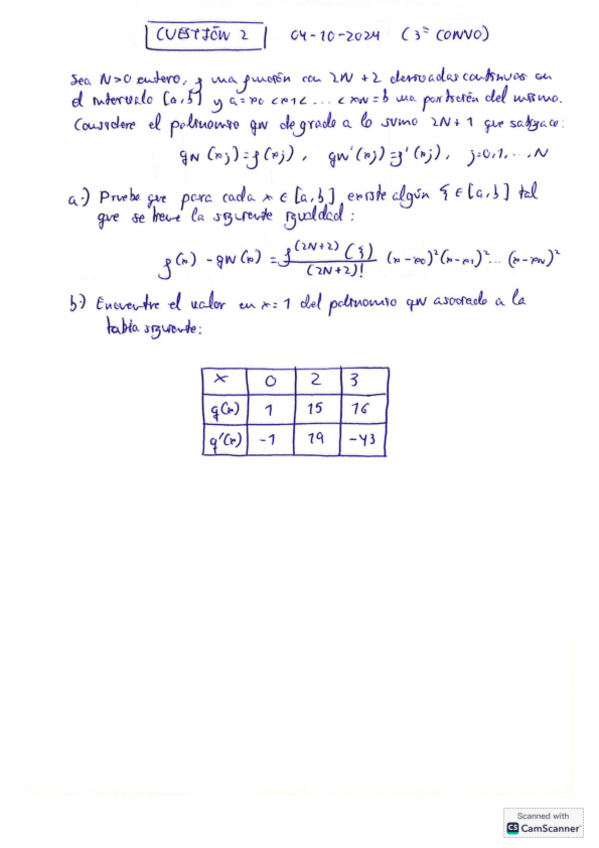 CUESTIÓN 2   04-10-2024 (3ª CONVO)
Sea N>0 entero, f una función con 2N+2 derivadas continuas en
el intervalo [a,b] y a=x0<x1<...<xN=b una partición del mismo.
Considere el polinomio qN de grado a lo sumo 2N+1 que satisface:
qN(xj)=f(xj), qN'(xj)=f'(xj), j=0,1,...,N
a.) Pruebe que para cada x∈[a,b] existe algún ξ∈[a,b] tal
que se tiene la siguiente igualdad:
f(x)-qN(x)=f^(2N+2)(ξ)/(2N+2)! (x-x0)²(x-x1)²...(x-xN)²
b.) Encuentre el valor en x=1 del polinomio qN asociado a la
tabla siguiente:
x 0 2 3
q(x) 1 15 16
q'(x) -1 19 -43
Scanned with
CS CamScanner